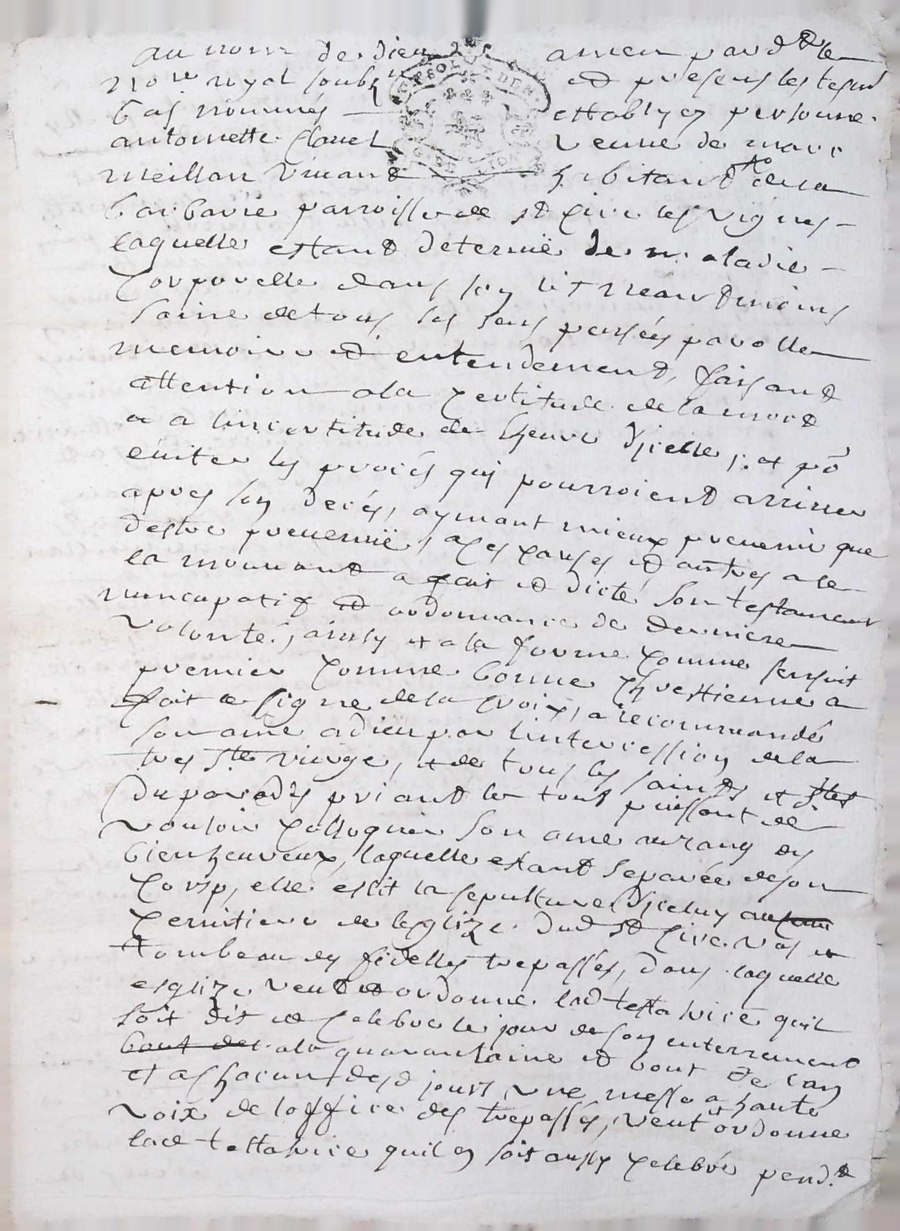 au nom de dieu amen pard.t le
no.re royal soubz.né et presens les tesm.
bas nommés establyez personne.
antoinette Clauel veuue de marc
meillan viuant habitant de la
barbarie parroisse de st Cire les vignes
laquelle estant detenuë de maladie
Corporelle dans son lit neantmoins
saine de tous ses sens pensées parolle
memoire et entendement, faisant
attention a la Certitude de la mort
et a lincertitude de lheure d'icelle, et po.r
euiter les procés qui pourroient arriuer
apres son decés, aymant mieux preuenir que
destre preuenuë, a ces causes et autres a ce
la mouuant a fait et dicté son testament
nuncupatif et ordonnance de derniere
volonté, ainsy et a la forme comme sensuit
premier comme bonne Chrestienne a
fait le signe de la Croix, a recommandé
son ame a dieu par lintercession de la
tres ste vierge, et de tous les saints et stes
du paradis priant le tout puissant de
vouloir Colloquer son ame au rang des
bienheureux, laquelle estant separée de son
Corp, elle eslit la sepulture d'iceluy
Cemitiere de leglize dud st Cire vas et
tombeau des fidelles trepassés, dans laquelle
esglize veut et ordonne lad testatrice quil
soit dit et Celebré le jour de son enterrement
bout de a la quarantaine et bout de lan
et a Chacun desd jours, vne messe a haute
voix de loffice des trepassés, veut et ordonne
lad testatrice quil en soit aussy Celebré pend.t